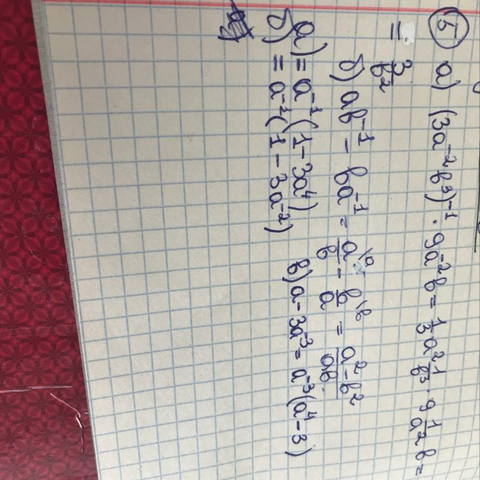 5 а) (3a⁻²b³)⁻¹ · 9a⁻²b = 1/3 a² 1/b³ · 9 1/a² b =
= 3/b²
б) ab⁻¹ - ba⁻¹ = a/b - b/a = (a²-b²)/ab
а) = a⁻¹(1-3a⁴) в) a-3a⁻³ = a⁻³(a⁴-3)
б) = a⁻²(1-3a⁻²)